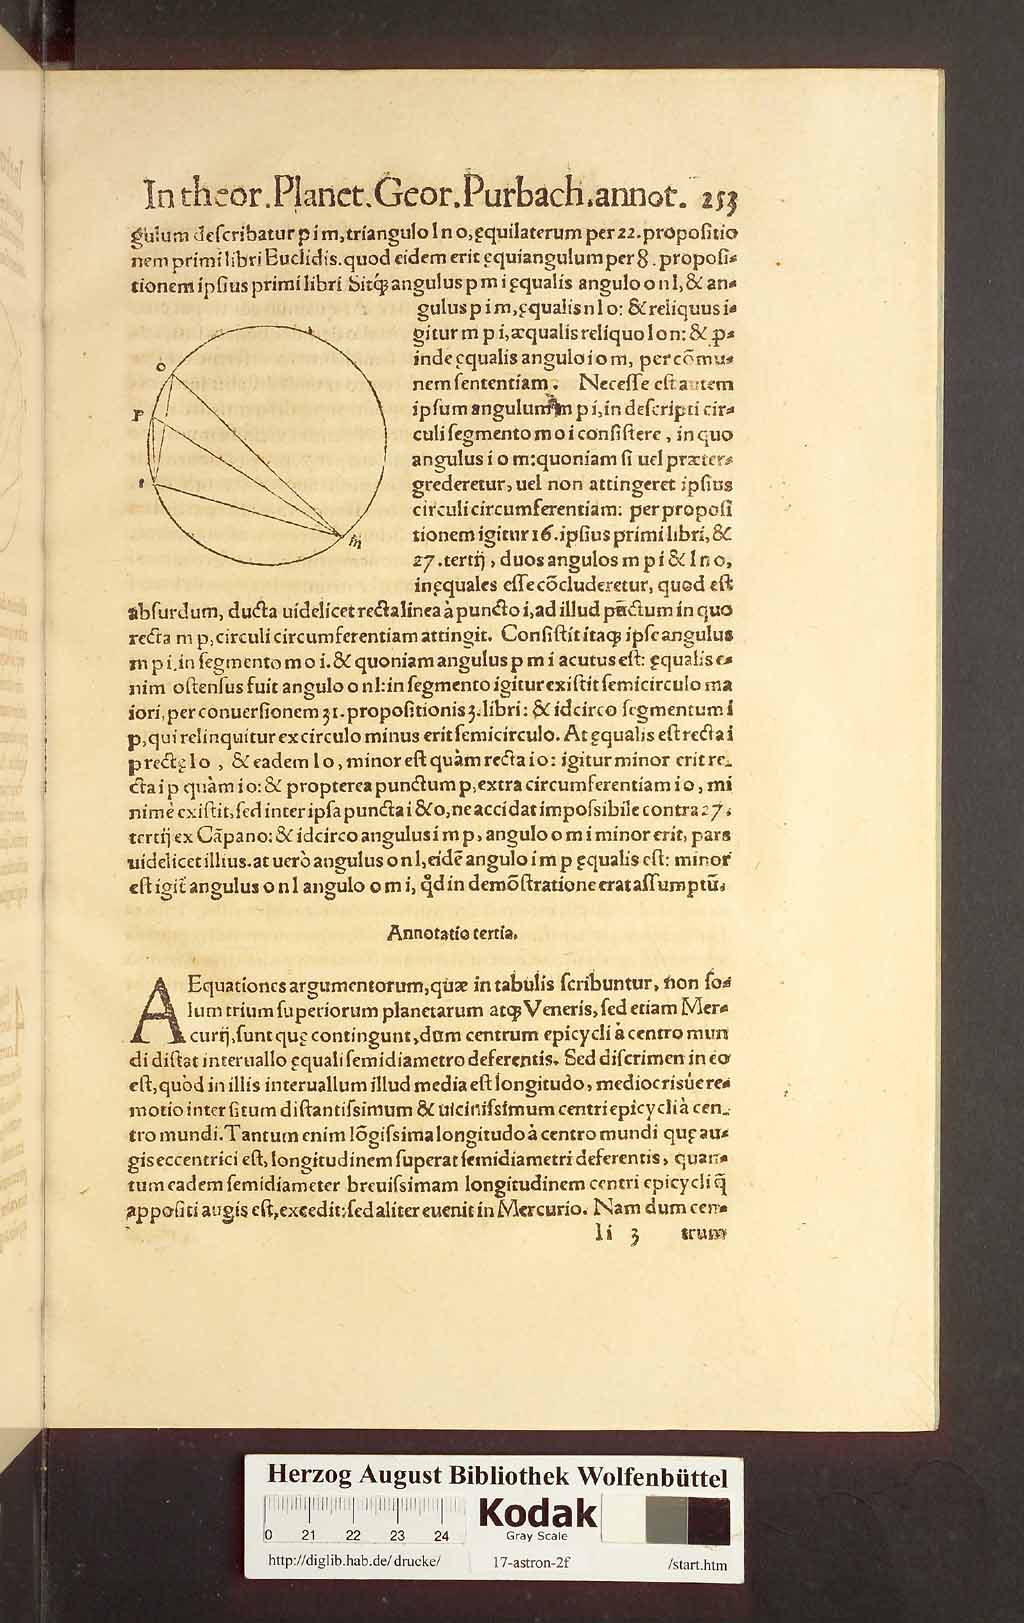 In theor. Planet. Geor. Purbach. annot. 253
gulum describatur p i m, triangulo l n o, ęquilaterum per 22. propositio
nem primi libri Euclidis. quod eidem erit ęquiangulum per 8. proposi-
tionem ipsius primi libri Sitq́ angulus p m i ęqualis angulo o n l, & an-
gulus p i m, ęqualis n l o: & reliquus i-
gitur m p i, æqualis reliquo l o n: & ꝓ-
inde ęqualis angulo i o m, per cõmu-
nem sententiam. Necesse est autem
ipsum angulum m p i, in descripti cir-
culi segmento m o i consistere, in quo
angulus i o m: quoniam si uel præter-
grederetur, uel non attingeret ipsius
circuli circumferentiam: per proposi
tionem igitur 16. ipsius primi libri, &
27. tertij, duos angulos m p i & l n o,
inęquales esse cõcluderetur, quod est
absurdum, ducta uidelicet recta linea à puncto i, ad illud pũctum in quo
recta m p, circuli circumferentiam attingit. Consistit itaq; ipse angulus
m p i, in segmento m o i. & quoniam angulus p m i acutus est: ęqualis e-
nim ostensus fuit angulo o n l: in segmento igitur existit semicirculo ma
iori, per conuersionem 31. propositionis 3. libri: & idcirco segmentum i
p, qui relinquitur ex circulo minus erit semicirculo. At ęqualis est recta i
p rectę l o, & eadem l o, minor est quàm recta i o: igitur minor erit re-
cta i p quàm i o: & propterea punctum p, extra circumferentiam i o, mi
nimè existit, sed inter ipsa puncta i & o, ne accidat impossibile contra 27.
tertij ex Cãpano: & idcirco angulus i m p, angulo o m i minor erit, pars
uidelicet illius. at uerò angulus o n l, eidẽ angulo i m p ęqualis est: minor
est igit̃ angulus o n l angulo o m i, q̃d in demõstratione erat assumptũ.
o
p
i
m
Annotatio tertia.
AEquationes argumentorum, quæ in tabulis scribuntur, non so-
lum trium superiorum planetarum atq; Veneris, sed etiam Mer-
curij, sunt quę contingunt, dum centrum epicycli à centro mun
di distat interuallo ęquali semidiametro deferentis. Sed discrimen in eo
est, quòd in illis interuallum illud media est longitudo, mediocrisúe re-
motio inter situm distantissimum & uicinissimum centri epicycli à cen-
tro mundi. Tantum enim lõgissima longitudo à centro mundi quę au-
gis eccentrici est, longitudinem superat semidiametri deferentis, quan-
tum eadem semidiameter breuissimam longitudinem centri epicycli q̃
appositi augis est, excedit: sed aliter euenit in Mercurio. Nam dum cen-
li 3 trum
Herzog August Bibliothek Wolfenbüttel
0 21 22 23 24
Kodak
Gray Scale
http://diglib.hab.de/drucke/ 17-astron-2f /start.htm